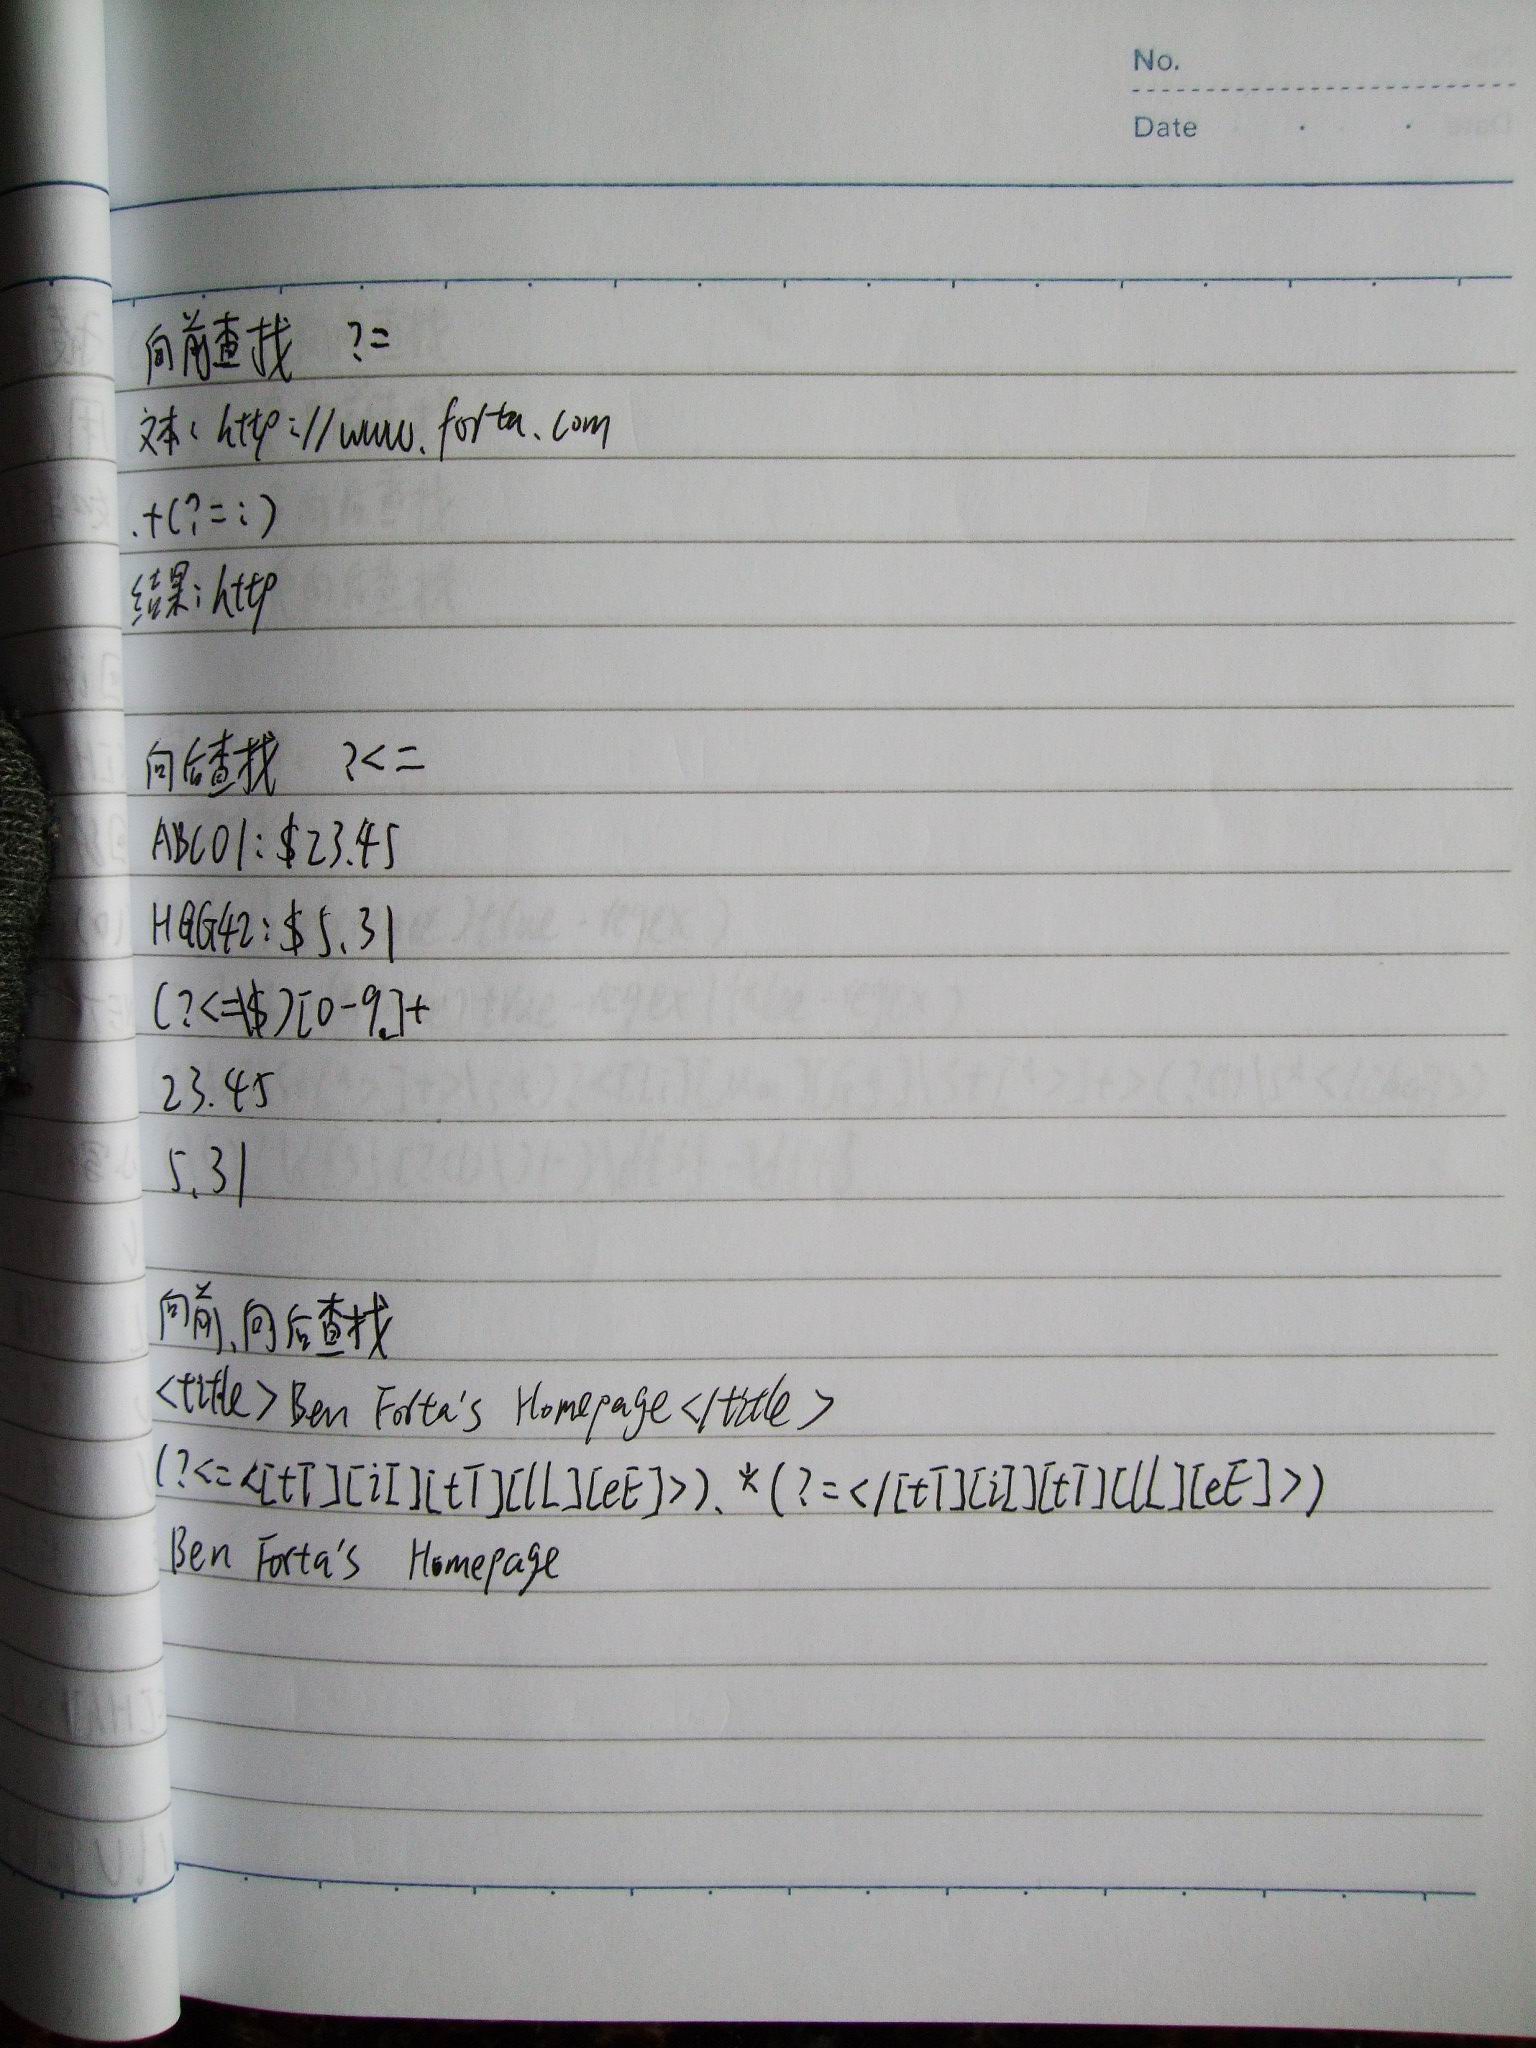 No.
Date
向前查找 ?=
文本: http://www.forta.com
.+(?=:)
结果: http
向后查找 ?<=
ABC01:$23.45
HGG42:$5.31
(?<=\$)[0-9.]+
23.45
5.31
向前、向后查找
<title>Ben Forta's Homepage</title>
(?<=<[tT][iI][tT][lL][eE]>).*(?=</[tT][iI][tT][lL][eE]>)
Ben Forta's Homepage